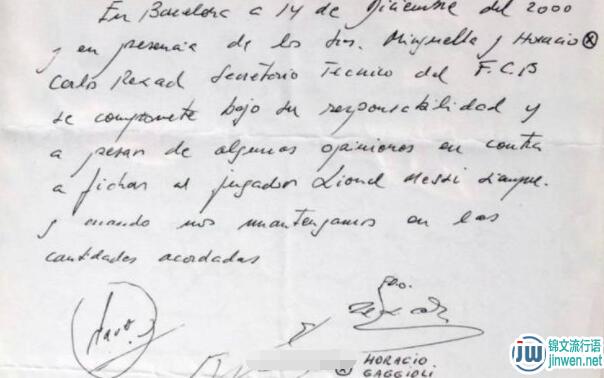 En Barcelona a 14 de Diciembre del 2000
y en presencia de los Sres. Minguella y Horacio
Carlos Rexach Secretario Técnico del F.C.B
se compromete bajo su responsabilidad y
a pesar de algunas opiniones en contra
a fichar al jugador Lionel Messi siempre
y cuando nos mantengamos en las
cantidades acordadas
HORACIO
GAGGIOLI
jw 锦文流行语
jinwen.net